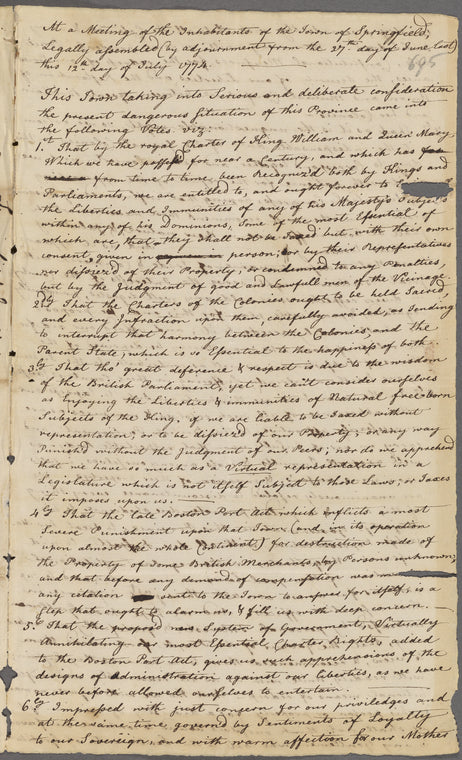 At a Meeting of the Inhabitants of the Town of Springfield,
Legally assembled (by adjournment from the 27th day of June last)
this 12th day of July 1774.
695
This Town taking into Serious and deliberate consideration
the present dangerous Situation of this Province come into
the following Votes viz.
1.t That by the royal Charter of King William and Queen Mary,
Which we have possess'd for near a Century, and which has
from time to time been Recogniz'd both by Kings and
Parliaments, we are entitled to, and ought forever to
the Liberties and Immunities of any of his Majesty's Subjects
within any of his Dominions, Some of the most Essential of
which are, that they shall not be Taxed but with their own
consent, given in person; or by their Representatives
nor disseiz'd of their Property, or condemned to any Penalties,
but by the Judgment of good and Lawfull men of the Vicinage.
2.ly That the Charters of the Colonies ought to be held Sacred,
and every Infraction upon them, carefully avoided, as tending
to interrupt that harmony between the Colonies and the
Parent State, which is so Essential to the happiness of both.
3.ly That tho' great deference & respect is due to the wisdom
of the British Parliament, yet we can't consider ourselves
as Enjoying the Liberties & immunities of Natural free-born
Subjects of the King, if we are liable to be Taxed without
representation; or to be disseiz'd of our Property; or any way
Punish'd without the Judgment of our Peers; nor do we apprehend
that we have so much as a Virtual representation in a
Legislature which is not itself Subject to those Laws; or Taxes
it imposes upon us.
4.ly That the late Boston Port Act which inflicts a most
Severe Punishment upon that Town (and in its operation
upon almost the whole Continent) for destruction made of
the Property of some British Merchants, by Persons unknown;
and that before any demand of compensation was
any citation sent to the Town to answer for itself, is a
step that ought to alarm us, & fill us with deep concern.
5.ly That the propos'd new System of Government, Virtually
Annihilating our most Essential Charter Rights, added
to the Boston Port Act, gives us such apprehensions of the
designs of Administration against our liberties, as we have
never before allowed ourselves to entertain.
6.ly Impressed with just concern for our priviledges and
at the same time governed by Sentiments of Loyalty
to our Sovereign, and with warm affection for our Mother